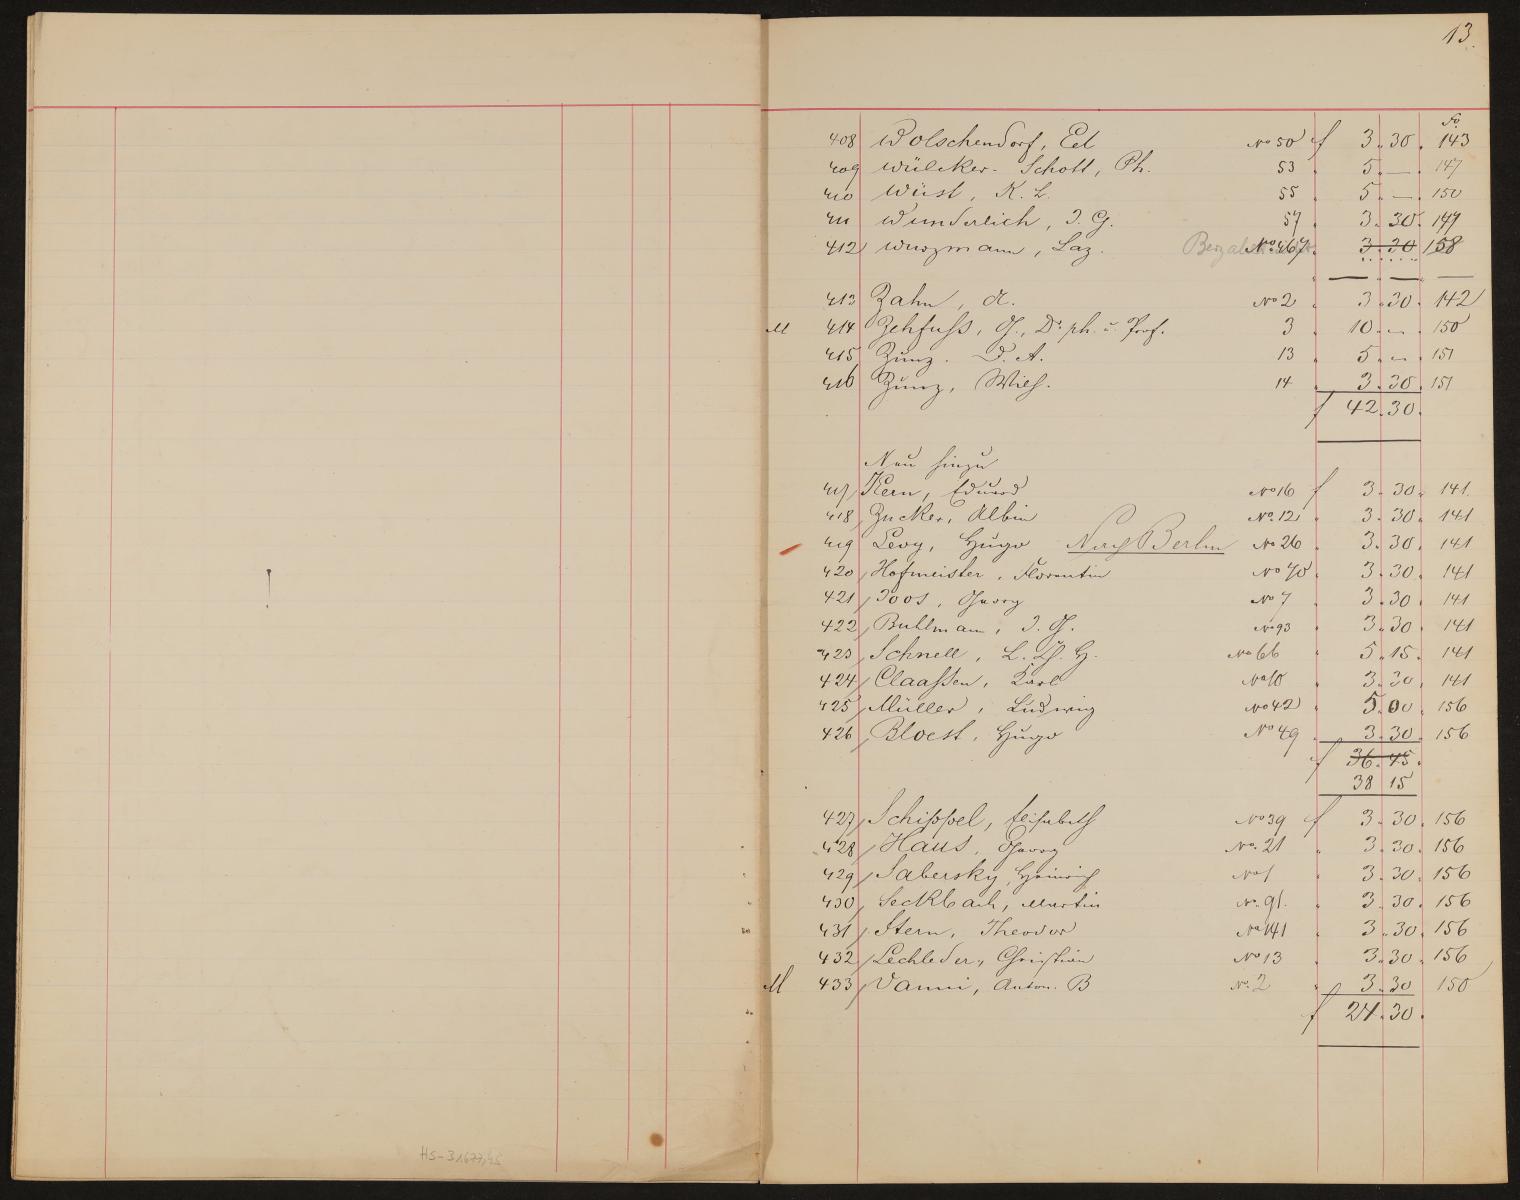 13.
Fo
408 Wolschendorf, Ed No 50 f 3. 30. 143
409 Wülcker-Schott, Ph. 53 5. — . 147
410 Wüst, K. L. 55 5. — . 150
411 Wunderlich, J. G. 57 3. 30. 147
412 Wurzmann, Laz. No 467 3. 30 158
— —  —
413 Zahn, A. No 2 3. 30. 142
M 414 Zehfuss, G., Dr. ph. u. Prof. 3 10. — . 150
415 Zunz. D. A. 13 5. — . 151
416 Zunz, Wilh. 14 3. 30. 151
f 42. 30.
Neu hinzu
417 Kern, Eduard No 16 f 3. 30. 141
418 Zucker, Albin No. 12 3. 30. 141
419 Levy, Hugo Nach Berlin No 26 3. 30. 141
420 Hofmeister, Florentin No 70 3. 30. 141
421 Joos, Georg No 7 3. 30. 141
422 Buhlmann, J. G. No 93 3. 30. 141
423 Schnell, L. Ch. H. No 66 5. 15. 141
424 Claaßen, Karl No 10 3. 30. 141
425 Müller, Ludwig No 42 5. 00. 156
426 Bloest, Hugo No 49 3. 30. 156
f 36. 45.
38 15
427 Schippel, Elisabeth No 39 f 3. 30. 156
428 Haus, Georg No. 21 3. 30. 156
429 Sabersky, Heinrich No 1 3. 30. 156
430 Seckbach, Martin No. 91. 3. 30. 156
431 Stern, Theodor No 141 3. 30. 156
432 Lechleder, Christian No 13 3. 30. 156
M 433 Vanni, Anton. B No. 2 3. 30 150
f 24. 30.